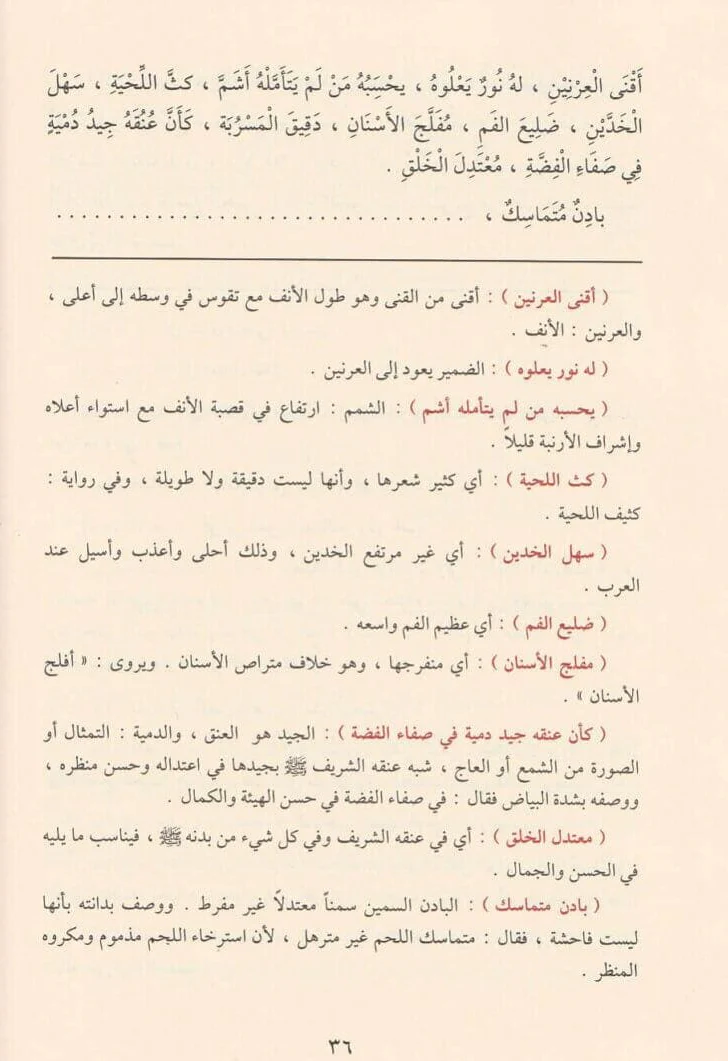 أَقْنَى الْعِرْنِيْنِ ، لهُ نُورٌ يَعْلُوهُ ، يحْسِبُهُ مَنْ لَمْ يَتَأَمَّلْهُ أَشَمَّ ، كثَّ اللِّحْيَةِ ، سَهْلَ
الْخَدَّيْنِ ، ضَلِيعَ الفَمِ ، مُفَلَّجَ الأَسْنَانِ ، دَقِيقَ الْمَسْرُبَة ، كَأَنَّ عُنُقَهُ جِيدُ دُمْيَةٍ
فِي صَفَاءِ الْفِضَّةِ ، مُعْتَدِلَ الْخَلْقِ .
بادِنٌ مُتَمَاسِكٌ ، . . . . . . . . . . . . . . . . . . . . . . . . . . . . . . . . .
( أقنى العرنين ) : أقنى من القنى وهو طول الأنف مع تقوس في وسطه إلى أعلى ،
والعرنين : الأنف .
( له نور يعلوه ) : الضمير يعود إلى العرنين .
( يحسبه من لم يتأمله أشم ) : الشمم : ارتفاع في قصبة الأنف مع استواء أعلاه
وإشراف الأرنبة قليلاً .
( كث اللحية ) : أي كثير شعرها ، وأنها ليست دقيقة ولا طويلة ، وفي رواية :
كثيف اللحية .
( سهل الخدين ) : أي غير مرتفع الخدين ، وذلك أحلى وأعذب وأسيل عند
العرب .
( ضليع الفم ) : أي عظيم الفم واسعه .
( مفلج الأسنان ) : أي منفرجها ، وهو خلاف متراص الأسنان . ويروى : « أفلج
الأسنان » .
( كأن عنقه جيد دمية في صفاء الفضة ) : الجيد هو العنق ، والدمية : التمثال أو
الصورة من الشمع أو العاج ، شبه عنقه الشريف ﷺ بجيدها في اعتداله وحسن منظره ،
ووصفه بشدة البياض فقال : في صفاء الفضة في حسن الهيئة والكمال .
( معتدل الخلق ) : أي في عنقه الشريف وفي كل شيء من بدنه ﷺ ، فيناسب ما يليه
في الحسن والجمال .
( بادن متماسك ) : البادن السمين سمناً معتدلاً غير مفرط . ووصف بدانته بأنها
ليست فاحشة ، فقال : متماسك اللحم غير مترهل ، لأن استرخاء اللحم مذموم ومكروه
المنظر .
٣٦